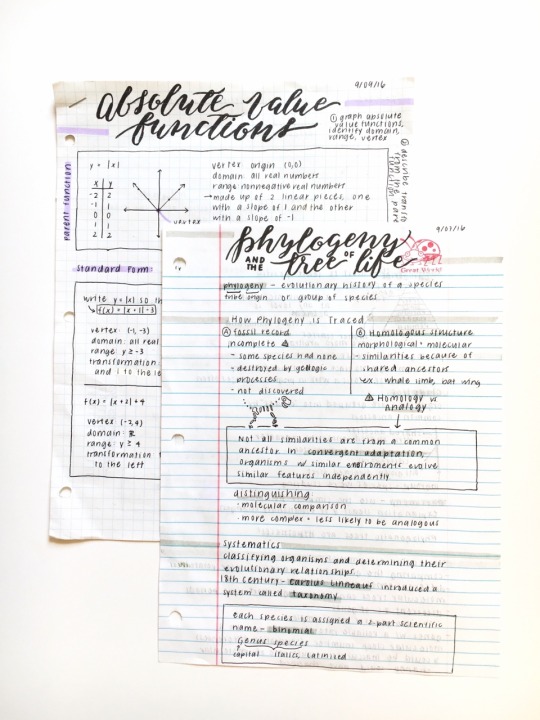 9/09/16
absolute value
functions
① graph absolute
value functions,
identify domain,
range, vertex
Parent function:
y = |x|
x y
-2 2
-1 1
0 0
1 1
2 2
vertex
vertex origin (0,0)
domain: all real numbers
range nonnegative real numbers
→ made up of 2 linear pieces, one
with a slope of 1 and the other
with a slope of -1
Standard Form:
write y = |x| so th
f(x) = |x + 1| - 3
vertex: (-1, -3)
domain: all real
range y ≥ -3
transformation
and 1 to the le
f(x) = |x + 2| + 4
vertex (-2, 4)
domain: ℝ
range: y ≥ 4
transformation
to the left
9/07/16
phylogeny
AND THE tree OF life
Great Work!
phylogeny - evolutionary history of a species
tribe origin or group of species
How Phylogeny is Traced
Ⓐ fossil record
incomplete
- some species had none
- destroyed by geologic
processes
- not discovered
Ⓑ Homologous structure
morphological + molecular
- similarities because of
shared ancestors
ex. whale limb, bat wing
Homology vs
Analogy
Not all similarities are from a common
ancestor in convergent adaptation,
organisms w/ similar enviroments evolve
similar features independently
distinguishing
- molecular comparison
- more complex = less likely to be analogous
systematics
classifying organisms and determining their
evolutionary relationships.
18th Century - Carolus Linneaus introduced a
system called taxonomy
each species is assigned a 2-part scientific
name - binomial
Genus species
capital italics, Latinized